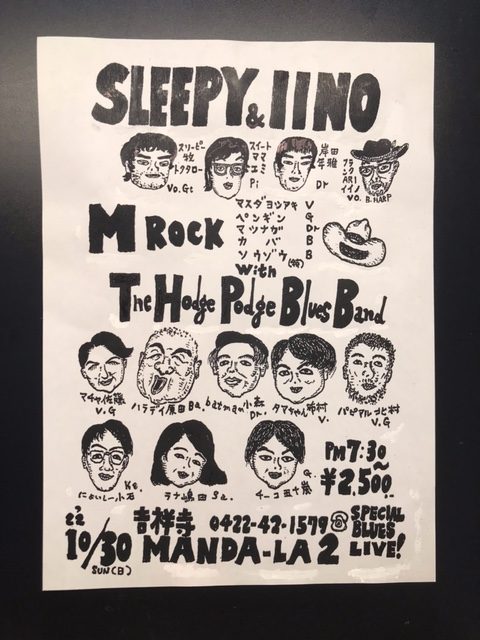 SLEEPY & IINO
スリーピー
牧
トクタロー
Vo.Gt
スイート
ママ
エミ
Pi
岸田
年雅
Dr
フランク
ARI
イイノ
VO. B.HARP
M ROCK
マスダヨシアキ V
ペンギン G
マツナガ Dr
カバ B
ソウゾウ(笑) B
With
The Hodge Podge Blues Band
マチャ佐藤
V.G
ハラデイ原田 Ba.
batman小森
Dr.
タマちゃん
V.
パピアル北村
V.G
Ke.
にょいしー小石
ラナ嶋田 Sa.
G.
チーコ五十嵐
PM7:30~
¥2,500
22'
10/30
SUN(日)
吉祥寺 0422-42-1579
MANDA-LA 2
SPECIAL
BLUES
LIVE!